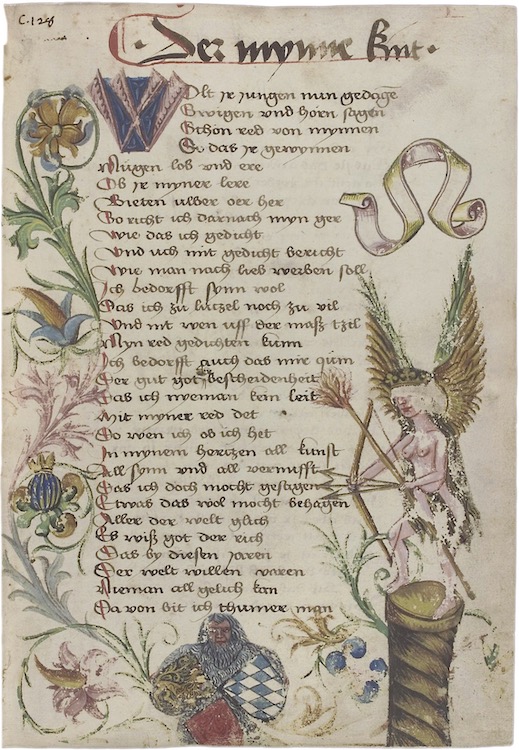 C. 128
Der mynne kint.
Wolt ir jungen nun gedage
Swigen vnd horn sagen
Schon red von mynnen
So das ir gewynnen
Mugen lob vnd ere
Ob ir myner lere
Bieten vlber oer her
So richt ich darnach myn ger
wie das ich gedicht
Vnd uch mit gedicht bericht
wie man nach lieb werben soll
Ich bedorfft synn wol
Das ich zu lutzel noch zu vil
Vnd nit wen uff der maß tzil
Myn red gedichten kunn
Ich bedorfft auch das mir qum
Der gut got bescheidenheit
Das ich nyeman kein leit
Mit myner red det
So wen ich ob ich het
In mynem hertzen all kunst
All synn vnd all vernufft
Das ich doch mocht gesagen
Etwas das wol mocht behagen
Aller der welt glich
Es wiß got der rich
Das by diesen jaren
Der welt willen varen
Nieman all gelich kan
Da von bit ich thumer man